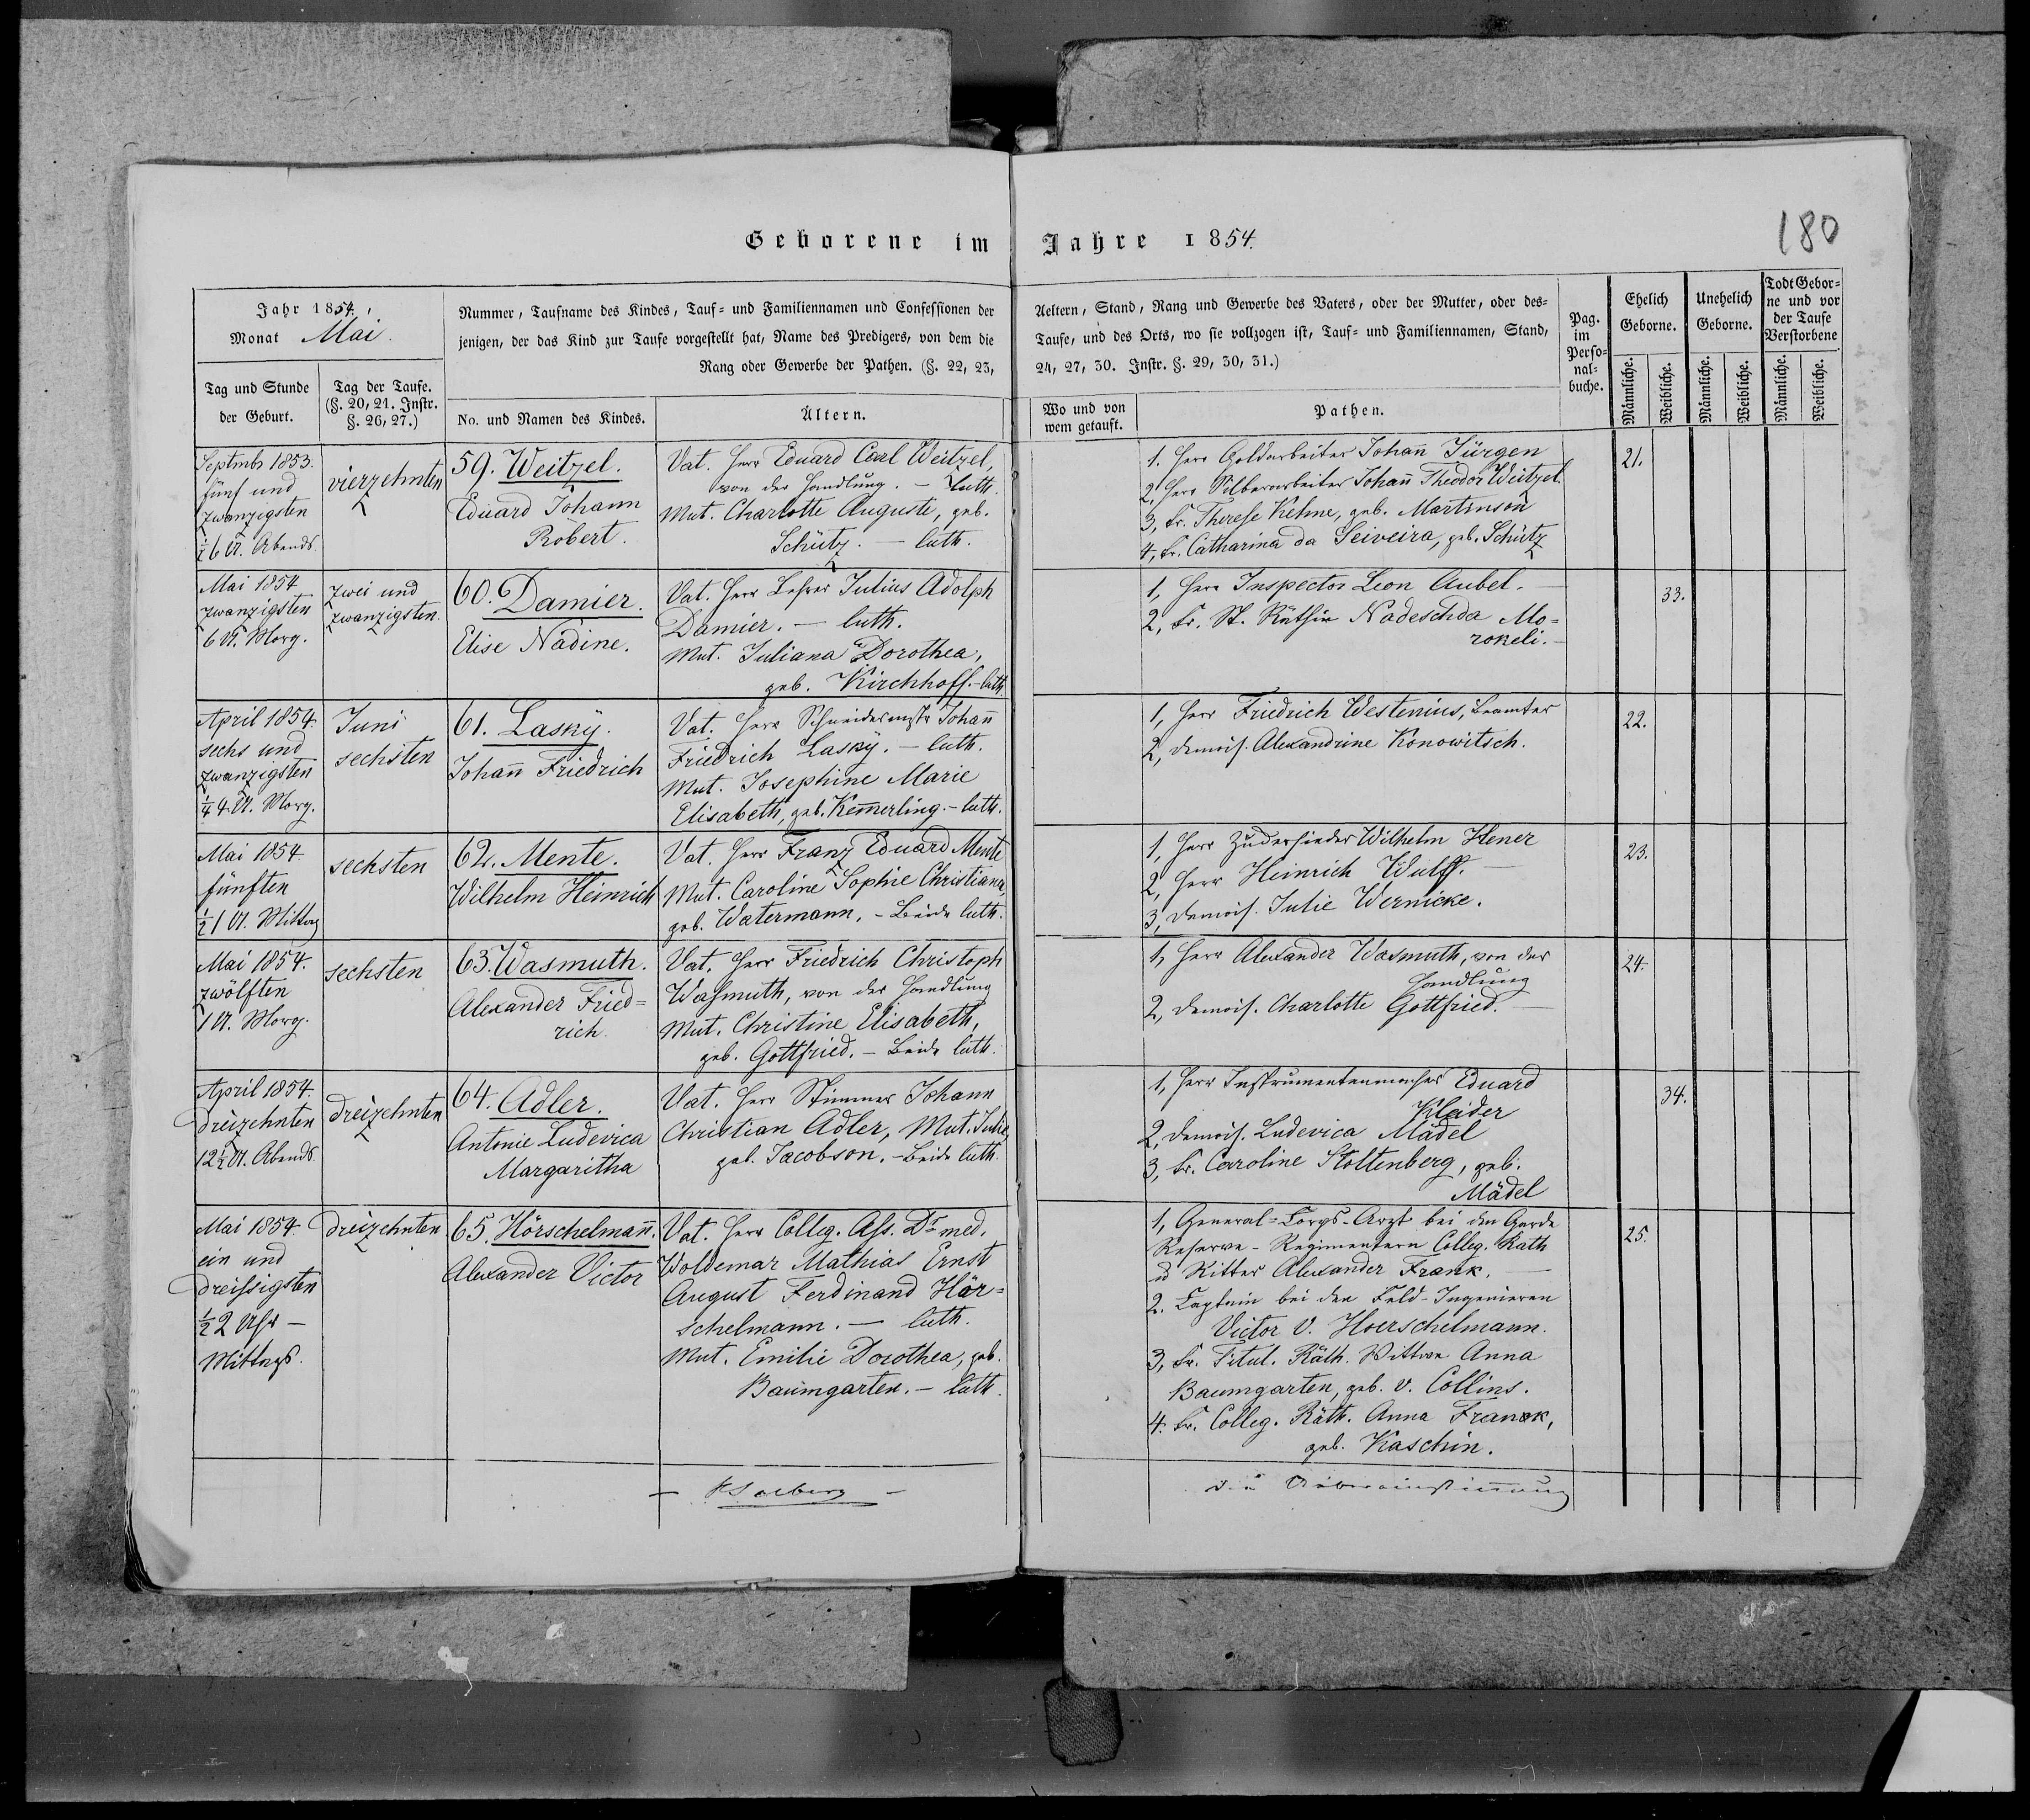 Geborene im Jahre 1854.
180
Jahr 1854,
Monat Mai.
Nummer, Taufname des Kindes, Tauf- und Familiennamen und Confessionen der
jenigen, der das Kind zur Taufe vorgestellt hat, Name des Predigers, von dem die
Rang oder Gewerbe der Pathen. (§. 22, 23,
Tag und Stunde
der Geburt.
Tag der Taufe.
(§. 20, 21. Instr.
§. 26, 27.)
No. und Namen des Kindes.
Ältern.
Aeltern, Stand, Rang und Gewerbe des Vaters, oder der Mutter, oder des-
Taufe, und des Orts, wo sie vollzogen ist, Tauf- und Familiennamen, Stand,
24, 27, 30. Instr. §. 29, 30, 31.)
Wo und von
wem getauft.
Pathen.
Pag.
im
Perso-
nal-
buche.
Ehelich
Geborne.
Unehelich
Geborne.
Todt Gebor-
ne und vor
der Taufe
Verstorbene
Männliche.
Weibliche.
Männliche.
Weibliche.
Männliche.
Weibliche.
Septmbr 1853.
fünf und
zwanzigsten
½ 6 U. Abends.
vierzehnten
59. Weitzel.
Eduard Johann
Robert.
Vat. Herr Eduard Carl Weitzel,
von der Handlung. – luth.
Mut. Charlotte Auguste, geb.
Schütz. – luth.
1. Herr Goldarbeiter Johann Jürgen
2, Herr Silberarbeiter Johann Theodor Weitzel.
3, Fr. Therese Kehne, geb. Martinson
4, Fr. Catharina da Seiveira, geb. Schütz
21.
Mai 1854
zwanzigsten
6 U. Morg.
zwei und
zwanzigsten.
60. Damier.
Elise Nadine.
Vat. Herr Lehrer Julius Adolph
Damier. – luth.
Mut. Juliana Dorothea,
geb. Kirchhoff. – luth.
1, Herr Inspector Leon Aubel. –
2, Fr. St. Räthin Nadeschda Mo-
rokeli. –
33.
April 1854.
sechs und
zwanzigsten
¼ 4 U. Morg.
Juni
sechsten
61. Lasky.
Johann Friedrich
Vat. Herr Schneidermstr Johann
Friedrich Lasky. – luth.
Mut. Josephine Marie
Elisabeth, geb. Kemerling. – luth.
1, Herr Friedrich Westenius, Beamter
2, Demois. Alexandrine Konowitsch.
22.
Mai 1854.
fünften
½ 1 U. Mittag
sechsten
62. Mente.
Wilhelm Heinrich
Vat. Herr Franz Eduard Mente
Mut. Caroline Sophie Christiana,
geb. Watermann. – Beide luth.
1, Herr Zuckersieder Wilhelm Hener
2, Herr Heinrich Wulff. –
3, Demois. Julie Wernicke.
23.
Mai 1854.
zwölften
1 U. Morg.
sechsten
63. Wasmuth.
Alexander Fried-
rich.
Vat. Herr Friedrich Christoph
Wasmuth, von der Handlung
Mut. Christine Elisabeth,
geb. Gottfried. – Beide luth.
1, Herr Alexander Wasmuth, von der
Handlung
2, Demois. Charlotte Gottfried. –
24.
April 1854.
dreizehnten
12½ U. Abends
dreizehnten
64. Adler.
Antonie Ludevica
Margaritha
Vat. Herr Stimmer Johann
Christian Adler, Mut. Julie,
geb. Jacobson. – Beide luth.
1, Herr Instrumentenmacher Eduard
Kleider
2, Demois. Ludevica Mädel
3, Fr. Caroline Stoltenberg, geb.
Mädel
34.
Mai 1854.
ein und
dreissigsten
½ 2 Uhr –
Mittags.
dreizehnten
65. Hörschelmann.
Alexander Victor
Vat. Herr Colleg. Ass. Dr med.
Woldemar Mathias Ernst
August Ferdinand Hör-
schelmann. – luth.
Mut. Emilie Dorothea, geb.
Baumgarten. – luth.
1, General-Corps-Arzt bei den Garde
Reserve-Regimentern Colleg. Rath
u Ritter Alexander Frank. –
2. Captain bei den Feld-Ingenieren
Victor v. Hoerschelmann.
3, Fr. Titul. Räth. Wittwe Anna
Baumgarten, geb. v. Collins.
4. Fr. Colleg. Räth. Anna Franck,
geb. Kaschin.
25.
die Uebereinstimmung